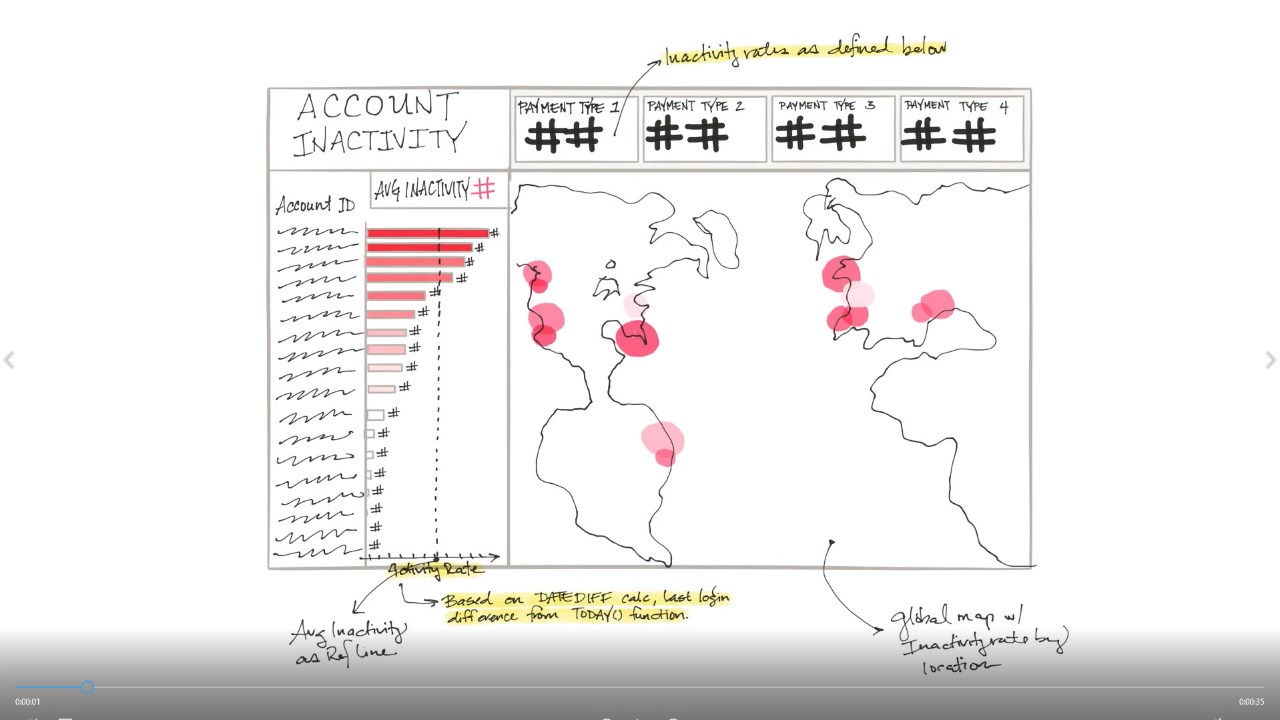 Inactivity rates as defined below
ACCOUNT
INACTIVITY
PAYMENT TYPE 1
##
PAYMENT TYPE 2
##
PAYMENT TYPE 3
##
PAYMENT TYPE 4
##
AVG INACTIVITY #
Account ID
#
#
#
#
#
#
#
#
#
#
#
#
#
#
#
#
#
#
Activity Rate
Based on DATEDIFF calc, last login
difference from TODAY() function.
Avg Inactivity
as Ref Line
global map w/
Inactivity rate by
location
0:00:01
0:00:35